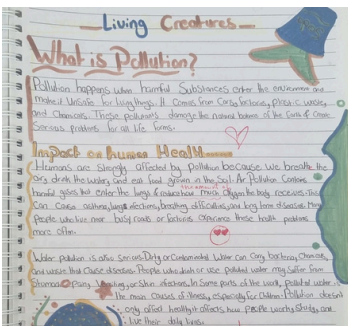 Living Creatures
What is Pollution?
Pollution happens when harmful Substances enter the environment and
make it unsafe for living things. It comes from Cars, factories, plastic waste,
and Chemicals. These pollutants damage the natural balance of the Earth & Create
Serious problems for all life forms.
Impact on human Health
Humans are strongly affected by Pollution because we breathe the
air, drink the water, and eat food grown in the Soil. Air Pollution Contains
harmful gases that enter the lungs & reduce how much Oxygen the body receives. This
can Cause asthma, lung infections, breathing difficulties, and long term diseases. Many
people who live near busy roads or factories experience these health problems
more often.
Water pollution is also Serious. Dirty or Contaminated Water can Carry bacteria, Chemicals,
and waste that Cause diseases. People who drink or use polluted water may Suffer from
Stomach pain, Vomiting, or Skin infections. In Some parts of the world, polluted water is
the main Causes of illness, especially for Children. Pollution doesn't
only affect health; it affects how people work, Study, and
live their daily lives.